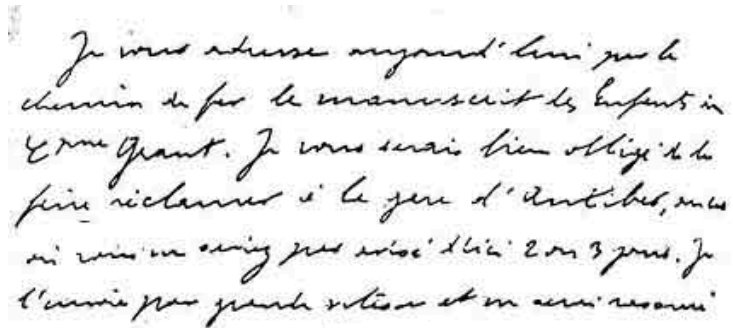 Je vous adresse aujourd'hui par le
chemin de fer le manuscrit des Enfants du
Cpne Grant. Je vous serais bien obligé de le
faire réclamer à la gare d'Antibes, au cas
où vous ne seriez pas avisé d'ici 2 ou 3 jours. Je
l'envoie par grande vitesse et en